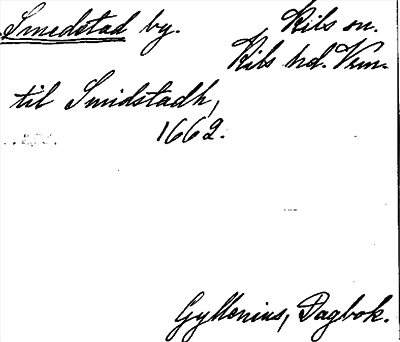 Smedstad by. Kils sn.
Kils hd. Värm.
til Smidstadh,
1662.
Gyllenius, Dagbok.